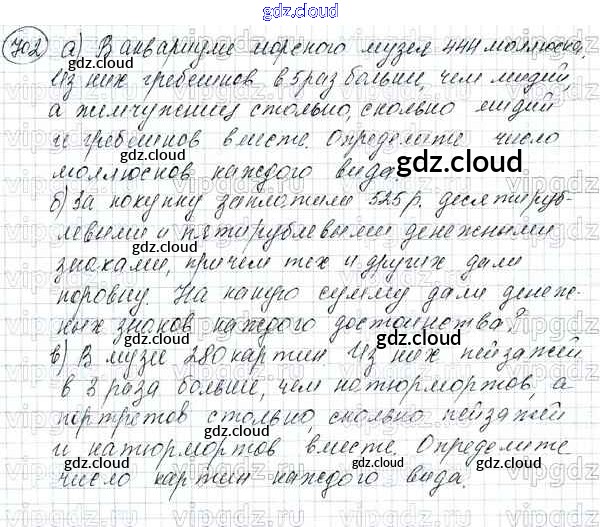 gdz.cloud
702 а) В аквариуме морского музея 444 моллюска.
Из них гребешков в 5 раз больше, чем мидий,
а жемчужниц столько, сколько мидий
и гребешков вместе. Определите число
моллюсков каждого вида.
б) За покупку заплатили 525 р. десятируб-
левыми и пятирублевыми денежными
знаками, причем тех и других дали
поровну. На какую сумму дали денеж-
ных знаков каждого достоинства?
в) В музее 280 картин. Из них пейзажей
в 3 раза больше, чем натюрмортов, а
портретов столько, сколько пейзажей
и натюрмортов вместе. Определите
число картин каждого вида.